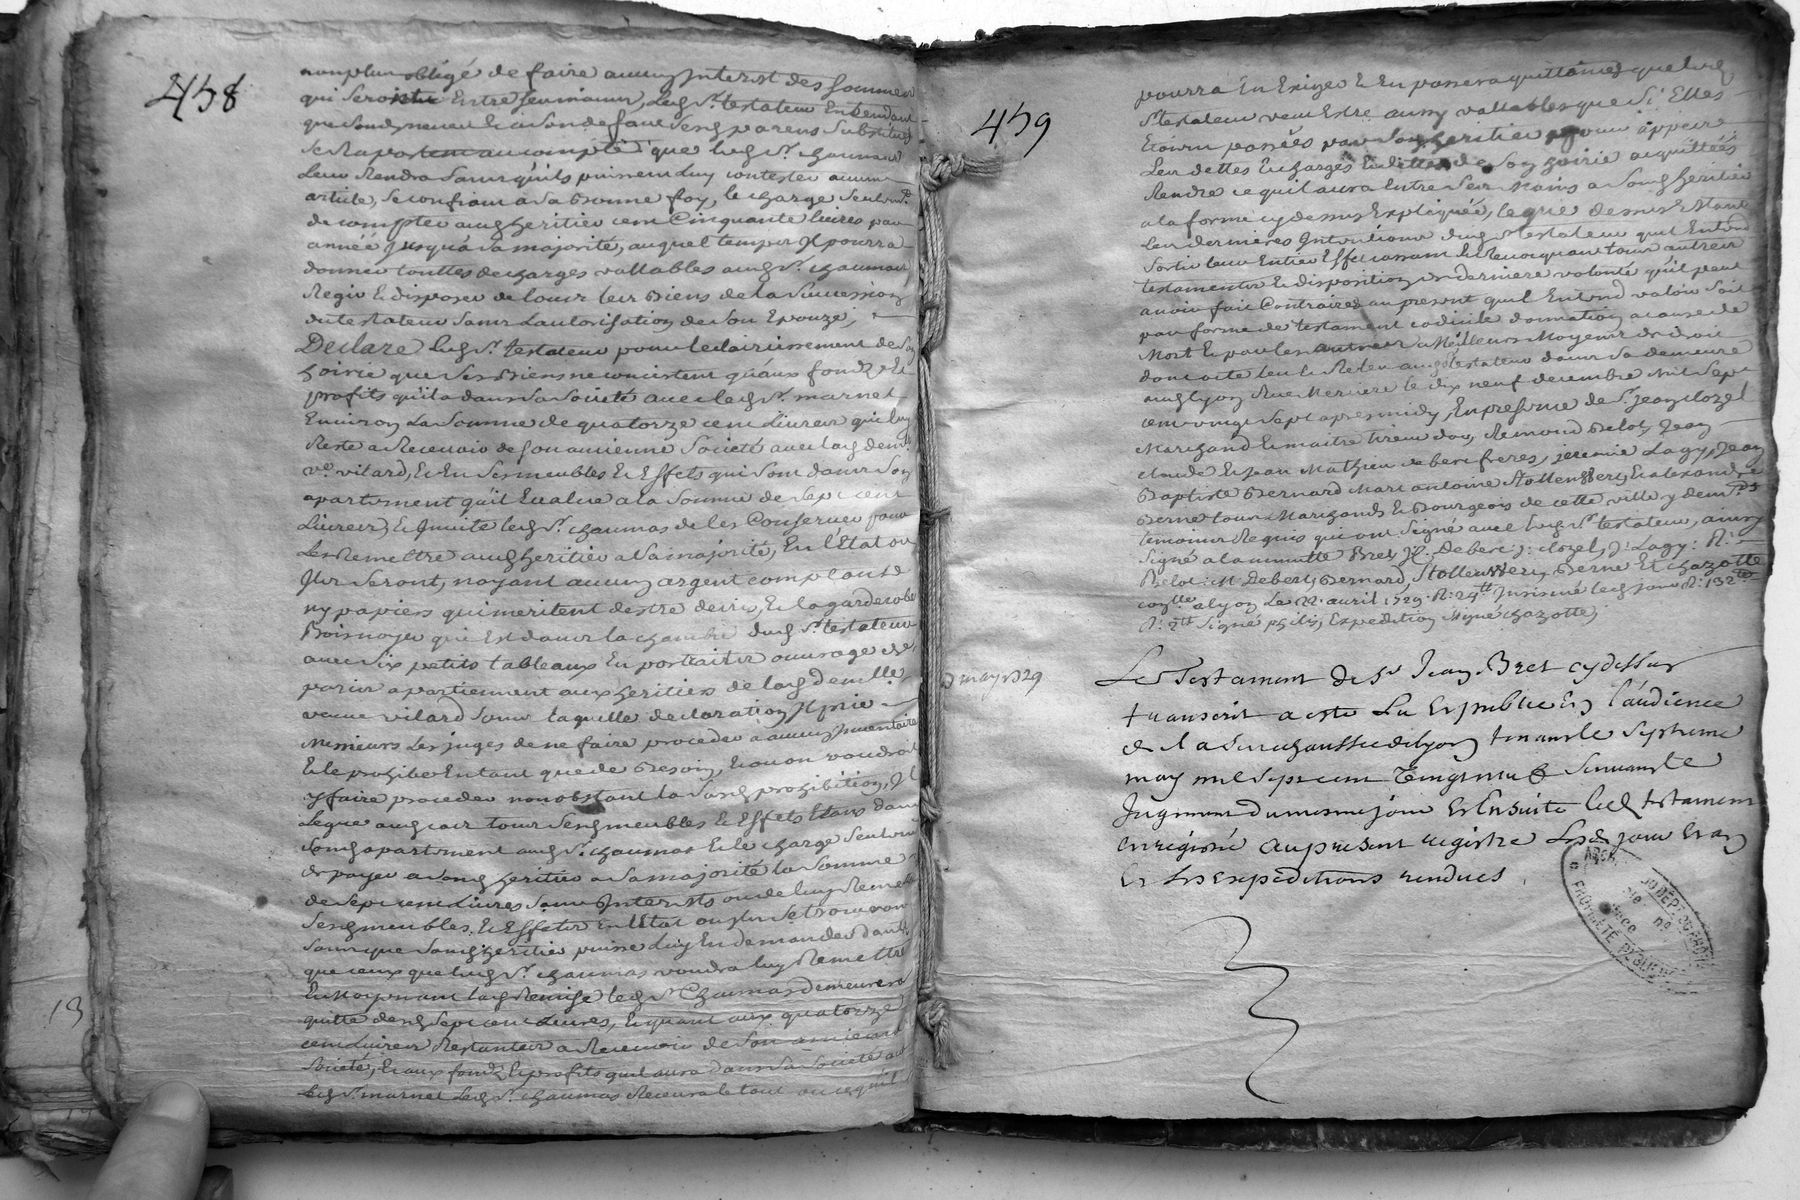 458
non plus obligé de faire aucun Interest des sommes
qui seront Entre ses mains, ledt Sr. testateur Entendant
se Raportent au compte que ledt Sr. chaumas
leur Rendra sans qu'ils puissent luy contester aucun
article, se confiant à sa bonne foy, le charge seulemt
de compter audt heritier cent Cinquante livres par
année jusqu'à sa majorité, auquel temps Il pourra
donner touttes decharges vallables audt Sr. chaumas
Regir & disposer de tous les biens de la succession
du testateur sans L'autorisation de son Epouze,
Declare ledt Sr. testateur pour l'eclaircissement de son
hoirie que ses biens ne concistent qu'aux fonds &
profits qu'il a dans sa société avec ledt Sr. marnet
Environ La somme de quatorze cent Livres qui luy
Reste a Recevoir de son ancienne société avec lad. demle
ve. vilard, & En ses meubles & Effets qui sont dans son
apartement qu'il Evalue a la somme de sept cent
Livres, & Invite ledt Sr. chaumas de les Conserver pour
les Remettre audt heritier a sa majorité, En l'Etat ou
Ils seront, n'ayant aucun argent comptant
ny papiers qui meritent d'estre decris, & la garderobe
Bois noyer qui Est dans la chambre dudt Sr. testateur
avec six petits tableaux En portraits ouvrage de
paris apartiennent aux heritiers de lad. demlle
veuve vilard, sous laquelle declaration Il prie
Messieurs Les juges de ne faire proceder à aucun Inventaire
& le prohibe En tant que de besoin, & ou on voudroit
y faire proceder nonobstant la susd. prohibition, Il
Legue audt cas tous sesd. meubles & Effets Etans dans
sond. apartement audt Sr. chaumas & le charge seulemt
de payer a sond. heritier a sa majorité la somme
de sept cent Livres sans Interests ou de luy Remettre
sesd. meubles & Effets En l'Etat ou Ils se trouveront
sans que sond. heritier puisse luy En demander d'autres
que ceux que ledt Sr. chaumas voudra luy Remettre
& Moyenant lad. Remise ledt Sr. Chaumas demeurera
quitte desd. sept cent Livres, & quant aux quatorze
cent Livres Restantes a Recevoir de son ancienne
société, & aux fonds & profits qu'il aura dans sa société avec
ledt Sr. marnet ledt Sr. chaumas Recevra le tout ou ce qu'il
459
pourra En Exiger & En passera quittances que ledt
Sr. testateur veut Estre aussy vallables que si Elles
Etoient passées par son heritier
Rendre ce qu'il aura Entre ses Mains a sond. heritier
a la forme cy dessus Expliquée, le que dessus
les dernieres Intentions dudt Sr. testateur qu'il Entend
sortir leur Entier Effet cassant & Revoquant tous autres
testaments & dispositions de derniere volonté qu'il peut
avoir fait Contraires au present qu'il Entend valoir soit
par forme de testament codicile donnation a cause de
Mort & par les autres Meilleurs Moyens de droit
dont acte leu & Releu audt testateur dans sa demeure
aud. lyon Rue Merciere le dix neuf decembre Mil sept
cent vingt sept apres midy, En presence de Sr. jean clozel
Marchand & maitre tireur d'or, Remond Belot, Jean
claude & Jean Mathieu debere freres, jeremie Lagy, Jean
Baptiste Bernard Marc antoine Stollenberg, & alexandre
Berne tous Marchands & Bourgeois de cette ville y demts
temoins Requis qui ont signé avec ledt Sr. testateur, ainsy
signé a la minutte Bret, Debere, j: clozel, J: Lagy: R:
Belot M Debere, Bernard, Stollenberg, Berne & chazotte
a lyon Le 22 avril 1729
signé chazotte;
9 may 1729
Le Testament de Sr Jean Bret cy dessus
transcrit a esté Lu et publié En l'audience
de La seneschaussée de Lyon tenant le septieme
may mil sept cent Vingt neuf suivant le
Jugement du mesme jour Et Ensuite led. testament
enrégistré au present registre Lesd jour et an
Et Les Expeditions rendues.
PROPRIÉTÉ PUBLIQUE